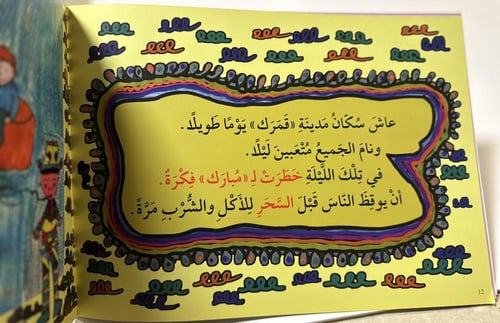 عاشَ سُكّانُ مَدينَةِ «قَمَرَك» يَوْمًا طَويلًا.
ونامَ الجَميعُ مُتْعَبينَ لَيْلًا.
في تِلْكَ اللَّيْلَةِ خَطَرَتْ لِـ «مُبارَك» فِكْرَةٌ.
أنْ يوقِظَ النّاسَ قَبْلَ السَّحَرِ لِلْأَكْلِ والشُّرْبِ مَرَّةً.
12